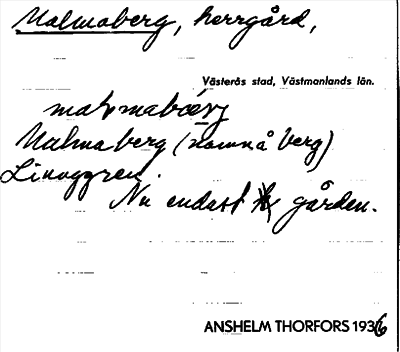 Malmaberg, herrgård,
Västerås stad, Västmanlands län.
Malmaberg (namnå berg)
Linnggren.
Nu endast gården.
ANSHELM THORFORS 1936